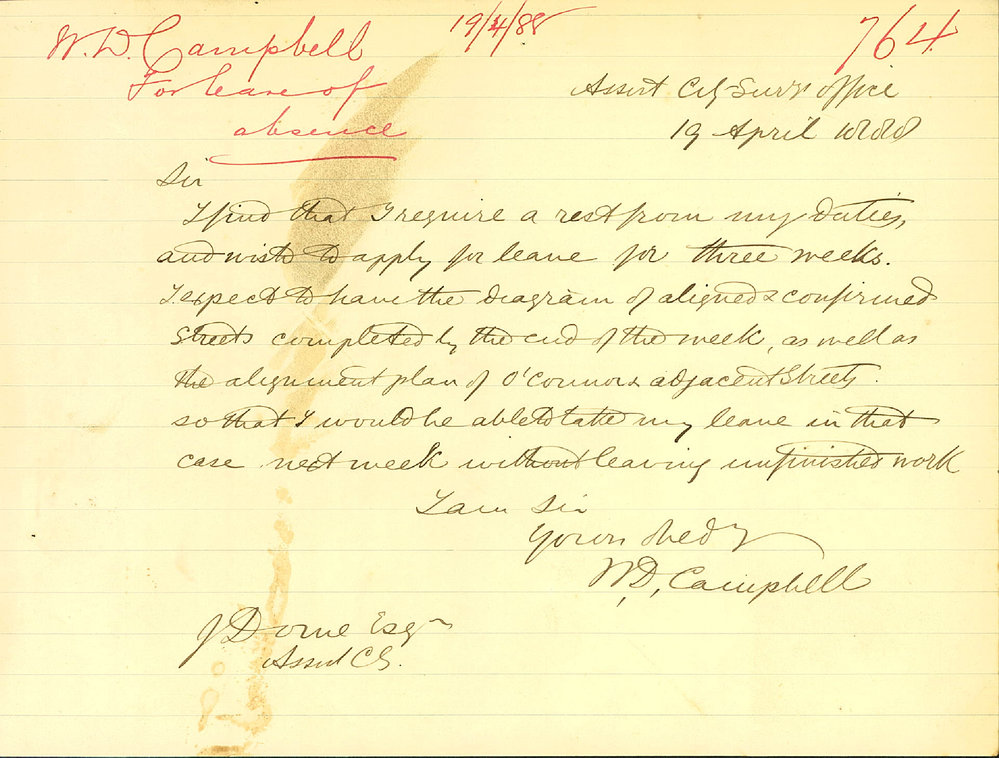 W.D. Campbell
For leave of
absence
19/4/88
764
Assist City Surv's office
19 April 1888
Sir
I find that I require a rest from my duties,
and wish to apply for leave for three weeks.
I expect to have the diagram of aligned & confirmed
Streets completed by the end of the week, as well as
the alignment plan of O'Connor & adjacent Streets.
so that I would be able to take my leave in that
case next week without leaving unfinished work
I am Sir
Yours
W.D. Campbell
Esq
Assist C.S.